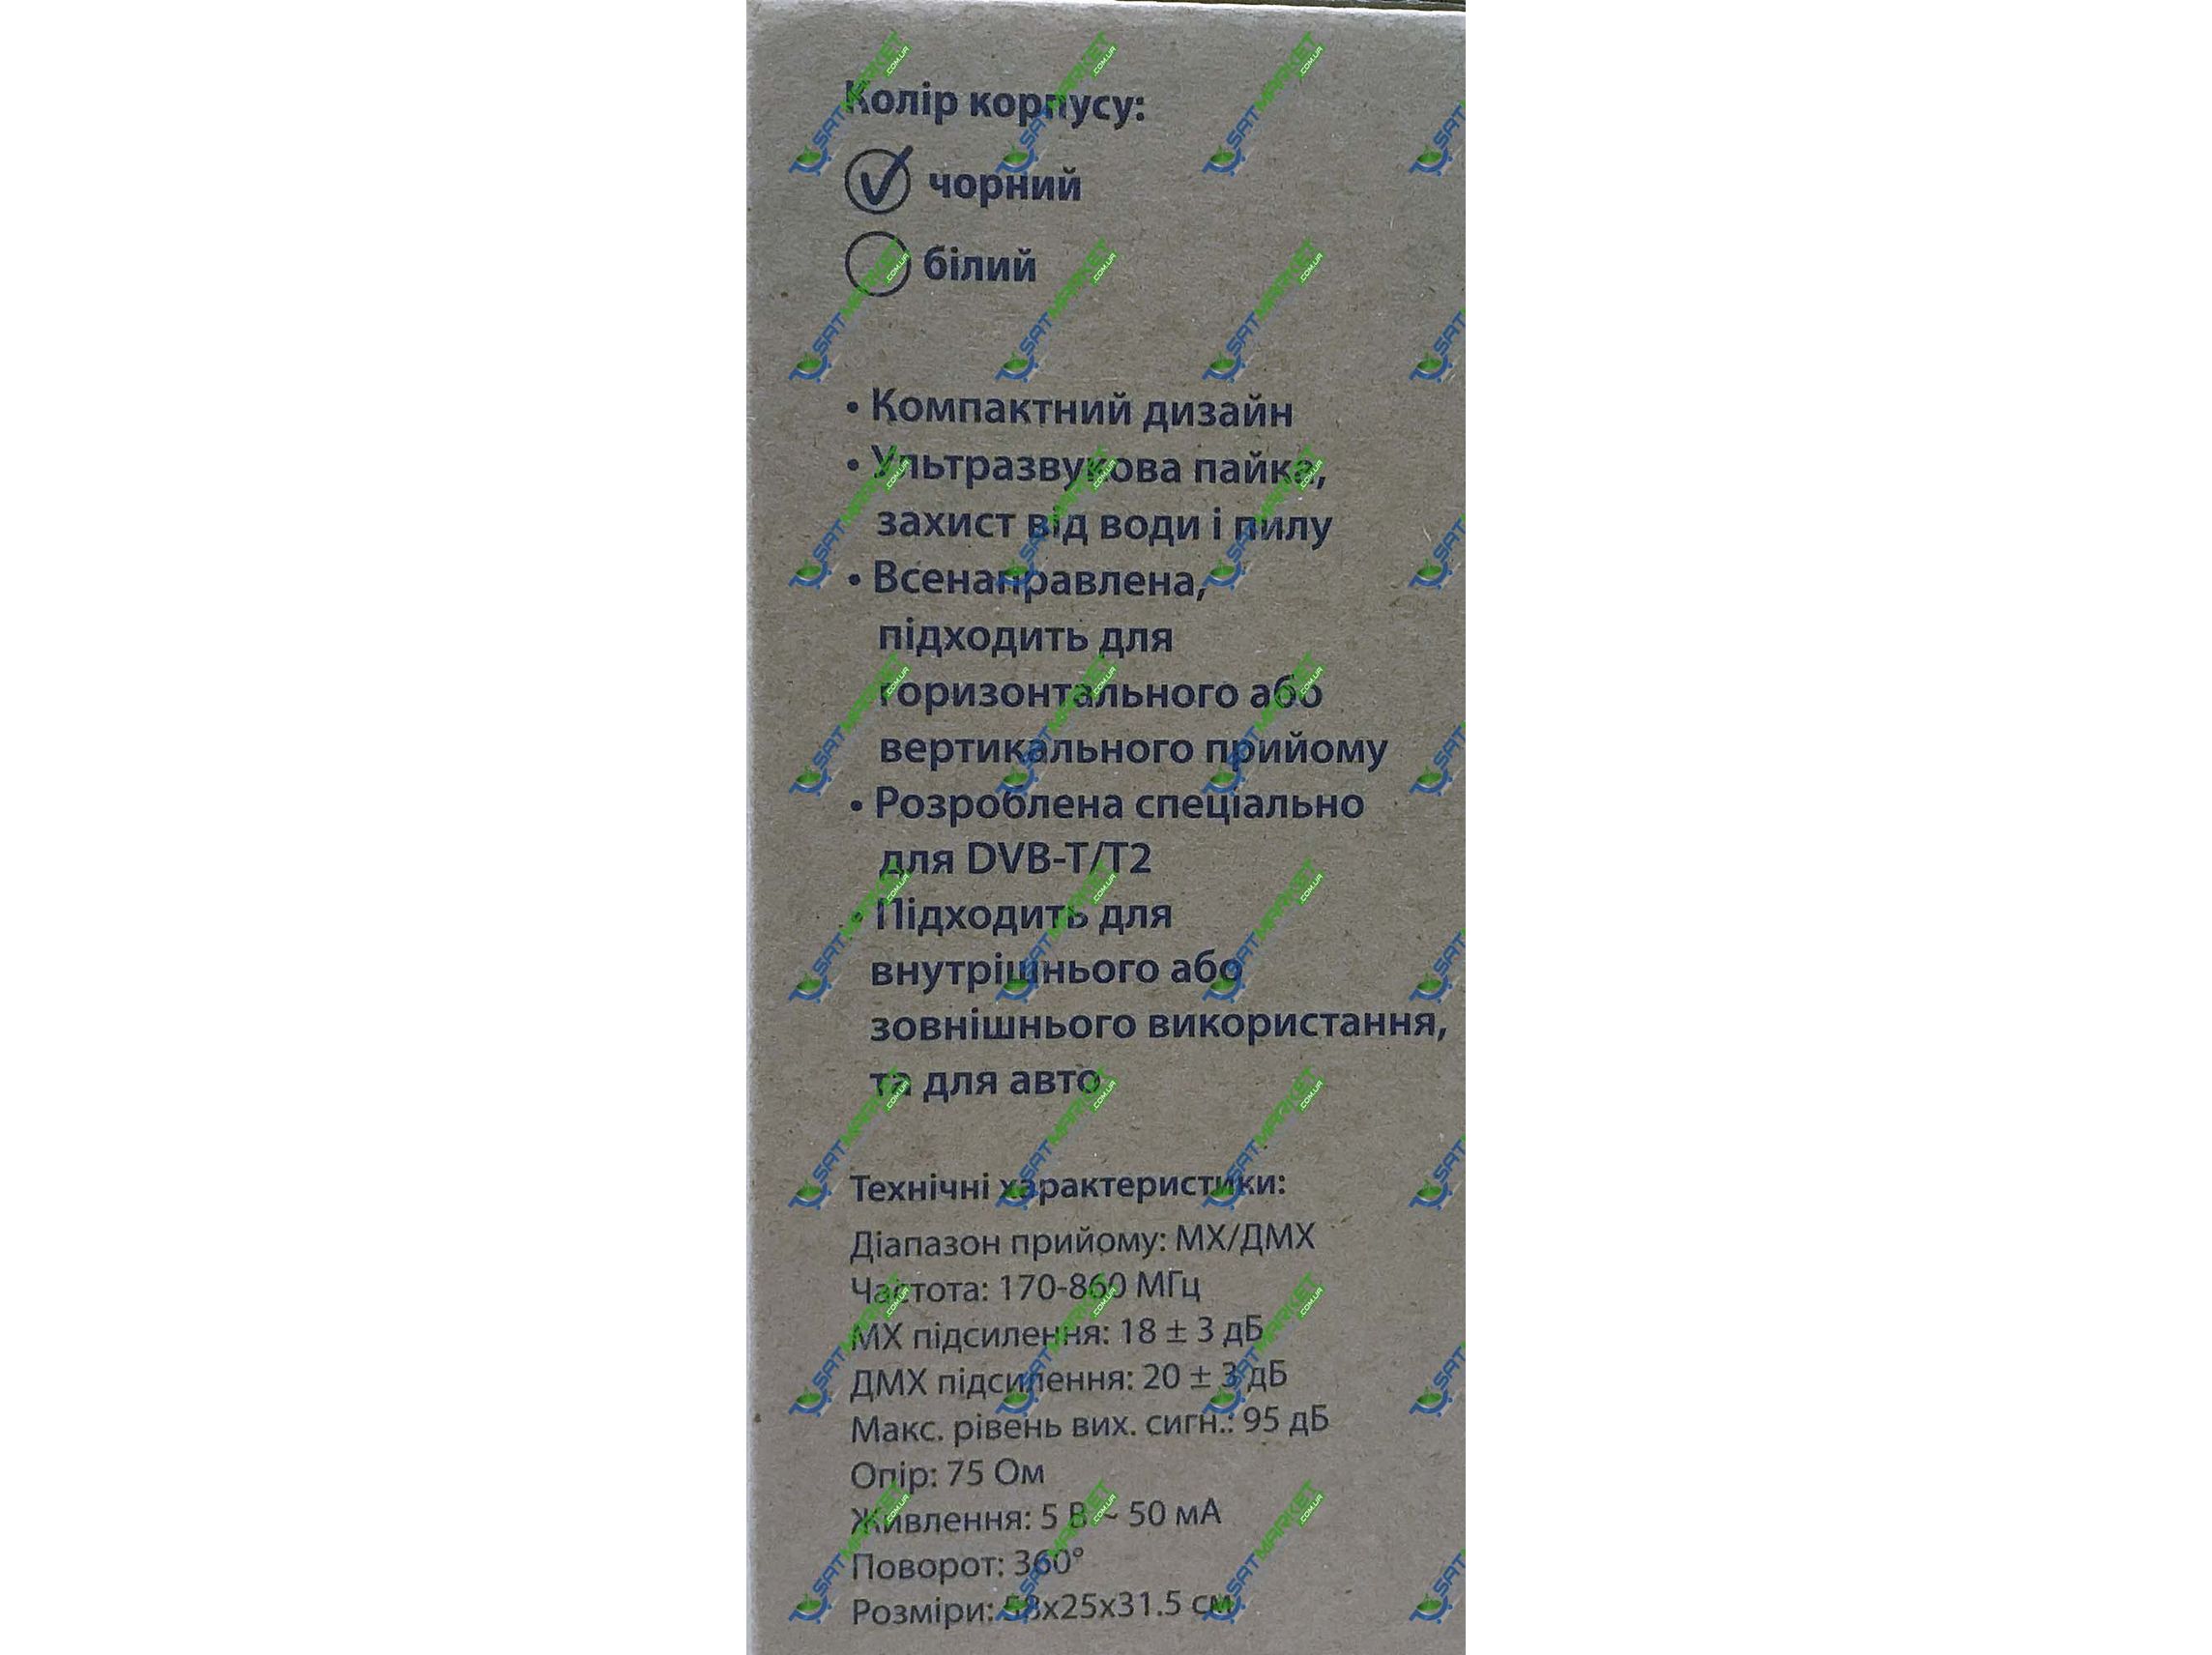 Колір корпусу:
чорний
білий
• Компактний дизайн
• Ультразвукова пайка,
захист від води і пилу
• Всенаправлена,
підходить для
горизонтального або
вертикального прийому
• Розроблена спеціально
для DVB-T/T2
• Підходить для
внутрішнього або
зовнішнього використання,
та для авто
Технічні характеристики:
Діапазон прийому: МХ/ДМХ
Частота: 170-860 МГц
МХ підсилення: 18 ± 3 дБ
ДМХ підсилення: 20 ± 3 дБ
Макс. рівень вих. сигн.: 95 дБ
Опір: 75 Ом
Живлення: 5 В ~ 50 мА
Поворот: 360°
Розміри: 58x25x31.5 см
SATMARKET.COM.UA